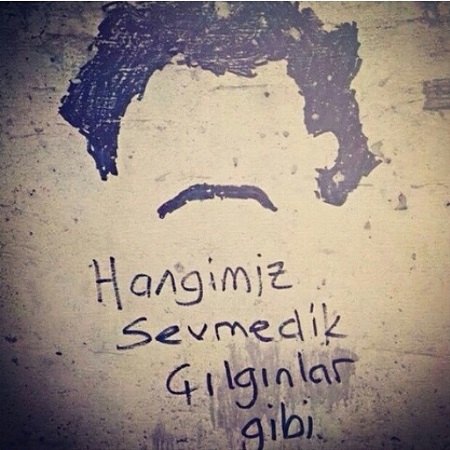 Hangimiz
sevmedik
çılgınlar
gibi